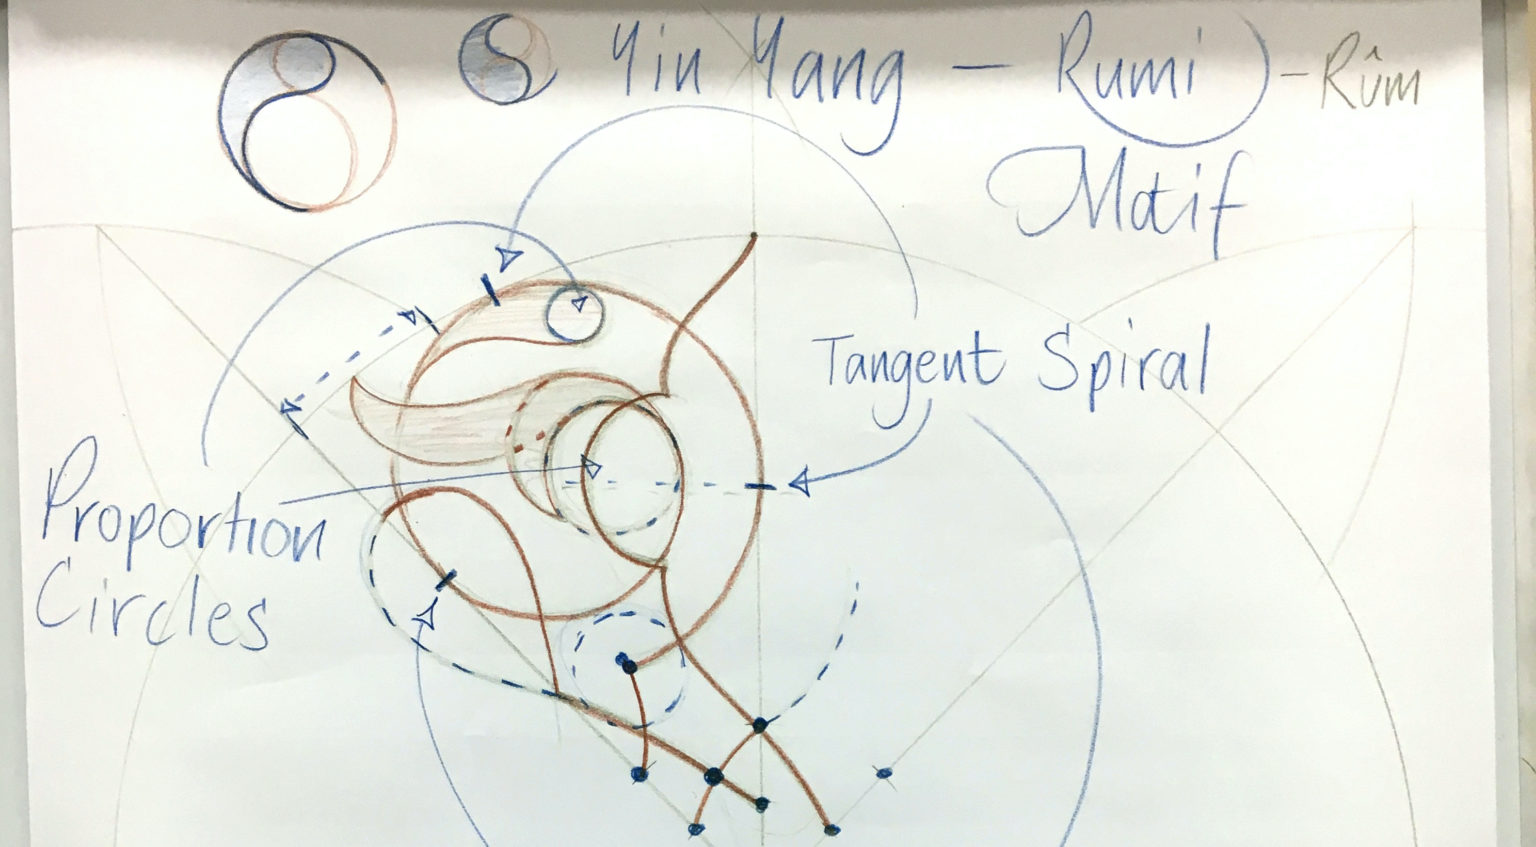 Yin Yang — Rumi - Rûm
Motif
Tangent Spiral
Proportion
Circles